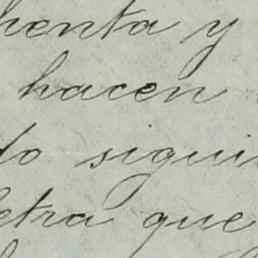 henta y
hacen
do sigui
letra que